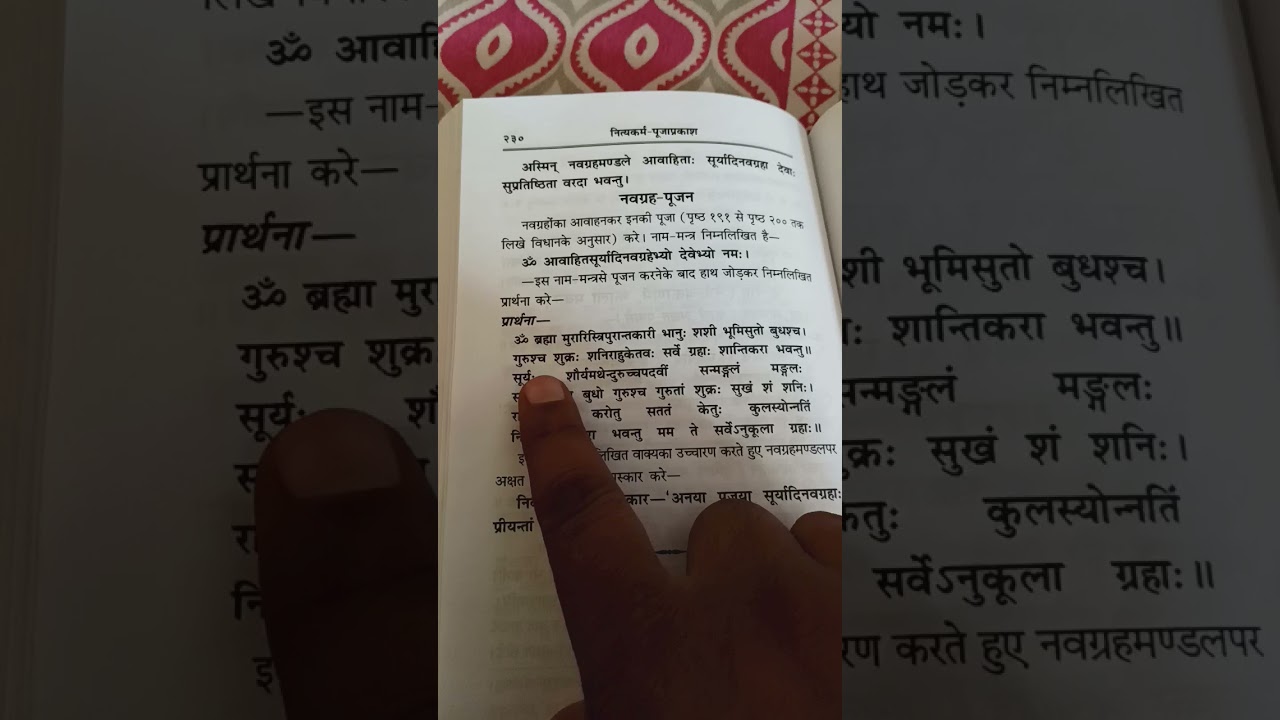 २३०
नित्यकर्म-पूजाप्रकाश
अस्मिन् नवग्रहमण्डले आवाहिताः सूर्यादिनवग्रहा देवाः
सुप्रतिष्ठिता वरदा भवन्तु।
नवग्रह-पूजन
नवग्रहोंका आवाहनकर इनकी पूजा (पृष्ठ १९१ से पृष्ठ २०० तक
लिखे विधानके अनुसार) करे। नाम-मन्त्र निम्नलिखित है—
ॐ आवाहितसूर्यादिनवग्रहेभ्यो देवेभ्यो नमः।
—इस नाम-मन्त्रसे पूजन करनेके बाद हाथ जोड़कर निम्नलिखित
प्रार्थना करे—
प्रार्थना—
ॐ ब्रह्मा मुरारिस्त्रिपुरान्तकारी भानुः शशी भूमिसुतो बुधश्च।
गुरुश्च शुक्रः शनिराहुकेतवः सर्वे ग्रहाः शान्तिकरा भवन्तु॥
सूर्यः शौर्यमथेन्दुरुच्चपदवीं सन्मङ्गलं मङ्गलः
बुधो गुरुश्च गुरुतां शुक्रः सुखं शं शनिः।
करोतु सततं केतुः कुलस्योन्नतिं
भवन्तु मम ते सर्वेऽनुकूला ग्रहाः॥
वाक्यका उच्चारण करते हुए नवग्रहमण्डलपर
अक्षत करे—
'अनया पूजया सूर्यादिनवग्रहाः
प्रीयन्तां